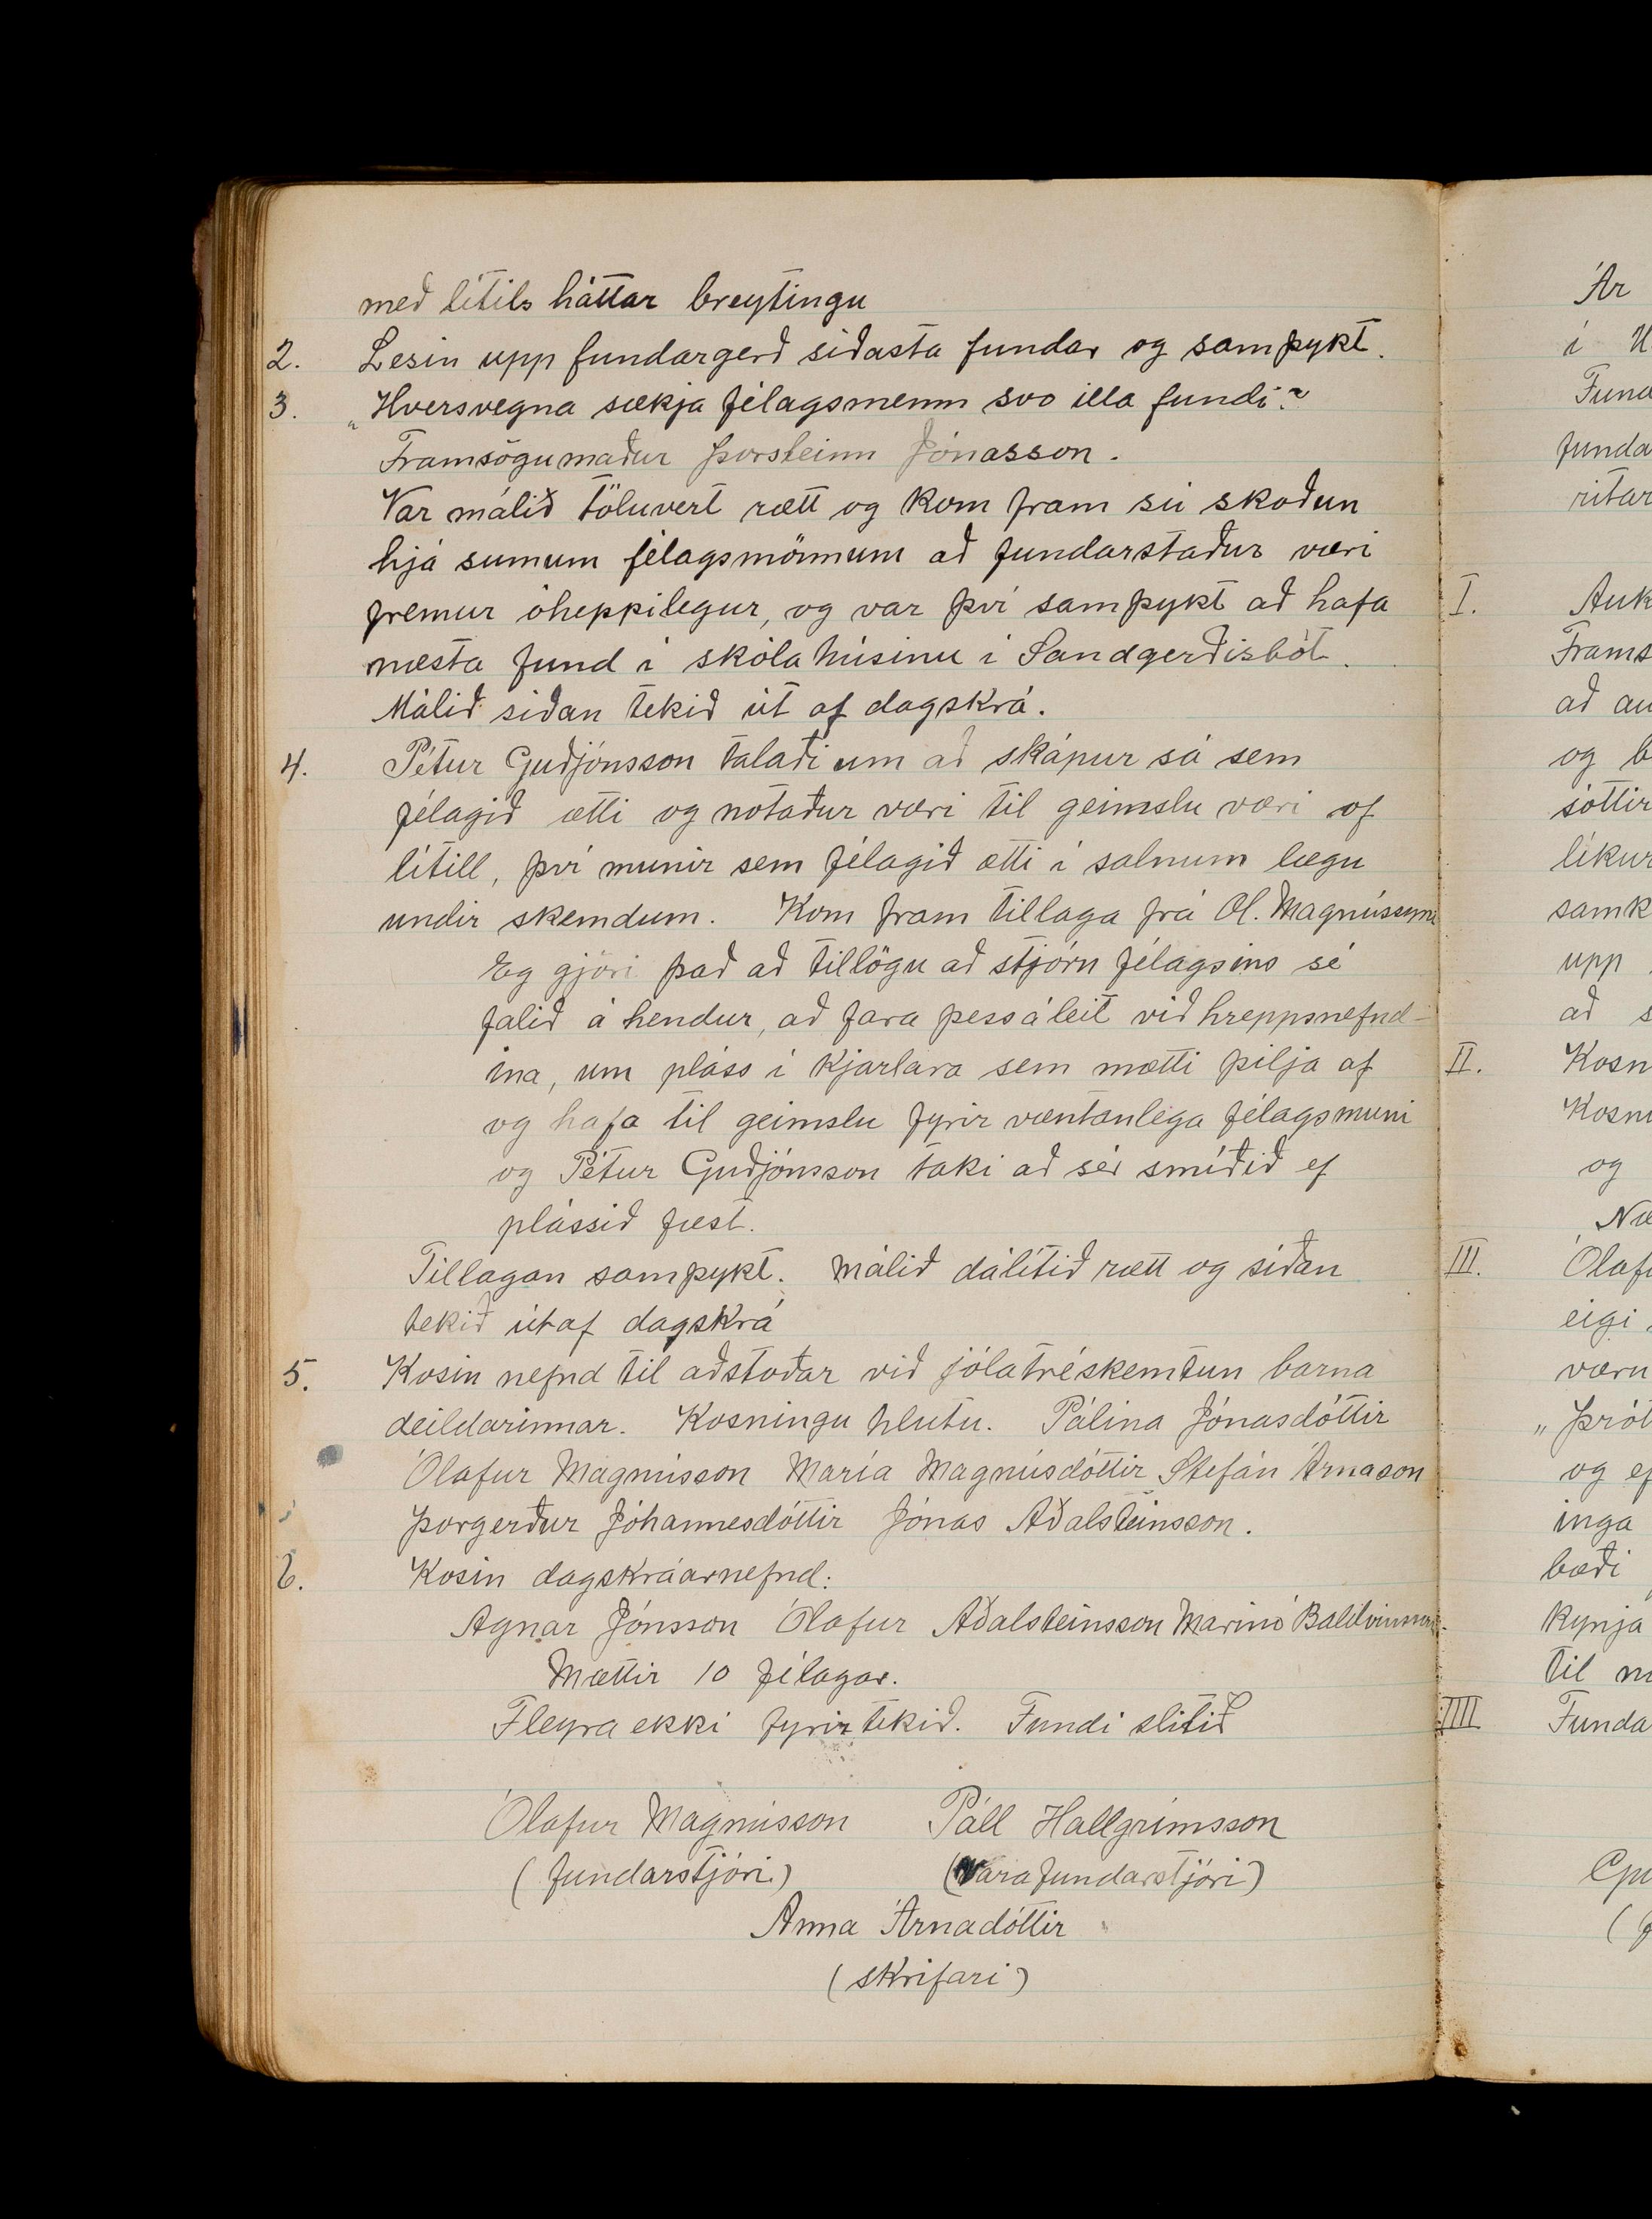 með lítils háttar breytingu
2. Lesin upp fundargerð síðasta fundar og samþykt.
3. „Hversvegna sækja félagsmenn svo illa fundi?"
Framsögumaður Þorsteinn Jónasson.
Var málið töluvert rætt og kom fram sú skoðun
hjá sumum félagsmönnum að fundarstaður væri
fremur óheppilegur, og var því samþykt að hafa
næsta fund í skólahúsinu í Sandgerðisbót.
Málið síðan tekið út af dagskrá.
4. Pétur Guðjónsson talaði um að skápur sá sem
félagið ætti og notaður væri til geimslu væri of
lítill, því munir sem félagið ætti í salnum lægu
undir skemdum. Kom fram tillaga frá Ól. Magnússyni
Eg gjöri það að tillögu að stjórn félagsins sé
falið á hendur, að fara þess á leit við hreppsnefnd-
ina, um pláss í kjarlara sem mætti þilja af
og hafa til geimslu fyrir væntanlega félagsmuni
og Pétur Guðjónsson taki að sér smíðið ef
plássið fæst.
Tillagan samþykt. Málið dálítið rætt og síðan
tekið útaf dagskrá
5. Kosin nefnd til aðstoðar við jólatréskemtun barna
deildarinnar. Kosningu hlutu. Pálína Jónasdóttir
Ólafur Magnússon María Magnúsdóttir Stefán Árnason
Þorgerður Jóhannesdóttir Jónas Aðalsteinsson.
6. Kosin dagskráarnefnd:
Agnar Jónsson Ólafur Aðalsteinsson Marinó Baldvinsson.
Mættir 10 félagar.
Fleyra ekki fyrirtekið. Fundi slitið
Ólafur Magnússon Páll Hallgrímsson
(fundarstjóri) (Varafundarstjóri)
Anna Árnadóttir
(skrifari)
Ár
í
Fund
funda
ritar
I. Auk
Frams
að au
og b
sóttir
líkur
samk
upp
að s
II. Kosn
Kosni
og
Næ
III. Ólafu
eigi
væru
„Þrót
og ef
inga
bæði
kynja
til
IIII Funda